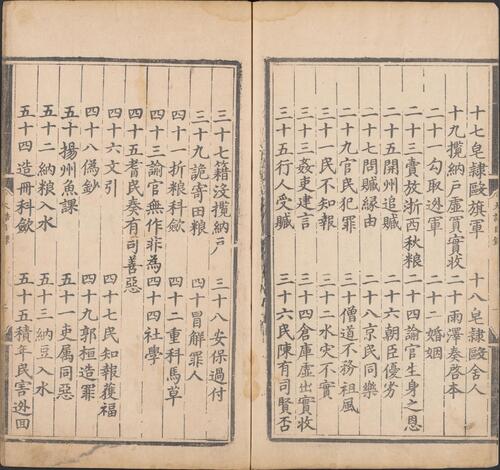 十七皂隷毆旗軍 十八皂隷毆舍人
十九攬納戶虛買實收 二十雨澤奏啓本
二十一勾取迯軍 二十二婚姻
二十三賣放浙西秋粮 二十四諭官生身之恩
二十五開州追贓 二十六朝臣優劣
二十七問贓緣由 二十八京民同樂
二十九官民犯罪 三十僧道不務祖風
三十一民不知報 三十二水灾不實
三十三姦吏建言 三十四倉庫虛出實收
三十五行人受贓 三十六民陳有司賢否
三十七籍沒攬納戶 三十八安保過付
三十九詭寄田粮 四十冒解罪人
四十一折粮科歛 四十二重科馬草
四十三諭官無作非為 四十四社學
四十五耆民奏有司善惡
四十六文引 四十七民知報獲福
四十八偽鈔 四十九郭桓造罪
五十揚州魚課 五十一吏属同惡
五十二納粮入水 五十三納豆入水
五十四造冊科歛 五十五積年民害迯回